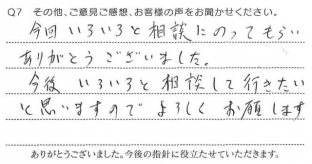 Q7 その他、ご意見ご感想、お客様の声をお聞かせください。
今回いろいろと相談にのってもらい
ありがとうございました。
今後いろいろと相談して行きたい
と思いますので よろしく お願します
ありがとうございました。今後の指針に役立たせていただきます。